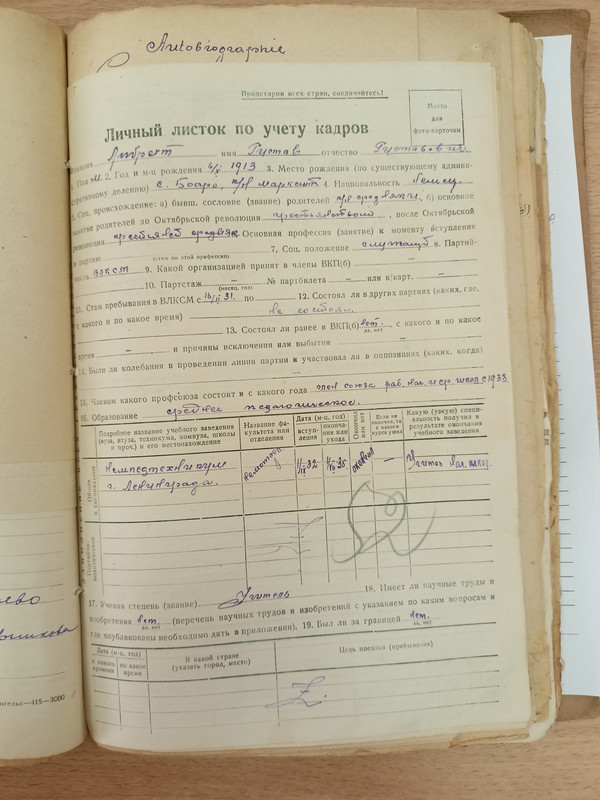 Autobiographie
Пролетарии всех стран, соединяйтесь!
Место
для
фото-карточки
Личный листок по учету кадров
Фамилия имя Густав отчество Густавович
1. Пол М. 2. Год и м-ц рождения 1913 3. Место рождения (по существующему админи-
стративному делению) с. Боаро, 4. Национальность немец
5. Соц. происхождение: а) бывш. сословие (звание) родителей б) основное
занятие родителей до Октябрьской революции , после Октябрьской
революции Основная профессия (занятие) к моменту вступления
в партию 7. Соц. положение служащ 8. Партий-
(стаж по этой профессии)
ность ВЛКСМ 9. Какой организацией принят в члены ВКП(б) —
10. Партстаж — № партбилета — или к/карт. —
(месяц, год)
11. Стаж пребывания в ВЛКСМ с 31. по 12. Состоял ли в других партиях (каких, где,
с какого и по какое время) не состоял.
13. Состоял ли ранее в ВКП(б) нет. , с какого и по какое
да, нет
время — и причины исключения или выбытия —
14. Были ли колебания в проведении линии партии и участвовал ли в оппозициях (каких, когда)
—
15. Членом какого профсоюза состоит и с какого года член союза раб. нач. и ср. школ с 1933.
16. Образование среднее педагогическое.
Подробное название учебного заведения
(вуза, втуза, техникума, комвуза, школы
и проч.) и его местонахождение
Название фа-
культета или
отделения
Дата (м-ц, год)
вступ-
ления
оконча-
ния или
ухода
Окончил
или нет
Если не
окончил, то
с какого
курса ушел
Какую (узкую) специ-
альность получил в
результате окончания
учебного заведения
Немпедтехникум
г. Ленинграда.
32
35
—
Учител. нач. школ.
17. Ученая степень (звание) Учитель 18. Имеет ли научные труды и
изобретения нет. (перечень научных трудов и изобретений с указанием по каким вопросам и
да, нет
где опубликованы необходимо дать в приложении). 19. Был ли за границей нет.
да, нет
Дата (м-ц, год)
с какого
времени
по какое
время
В какой стране
(указать город, место)
Цель поездки (пребывания)
Z.
ево
нгельс—415—3000